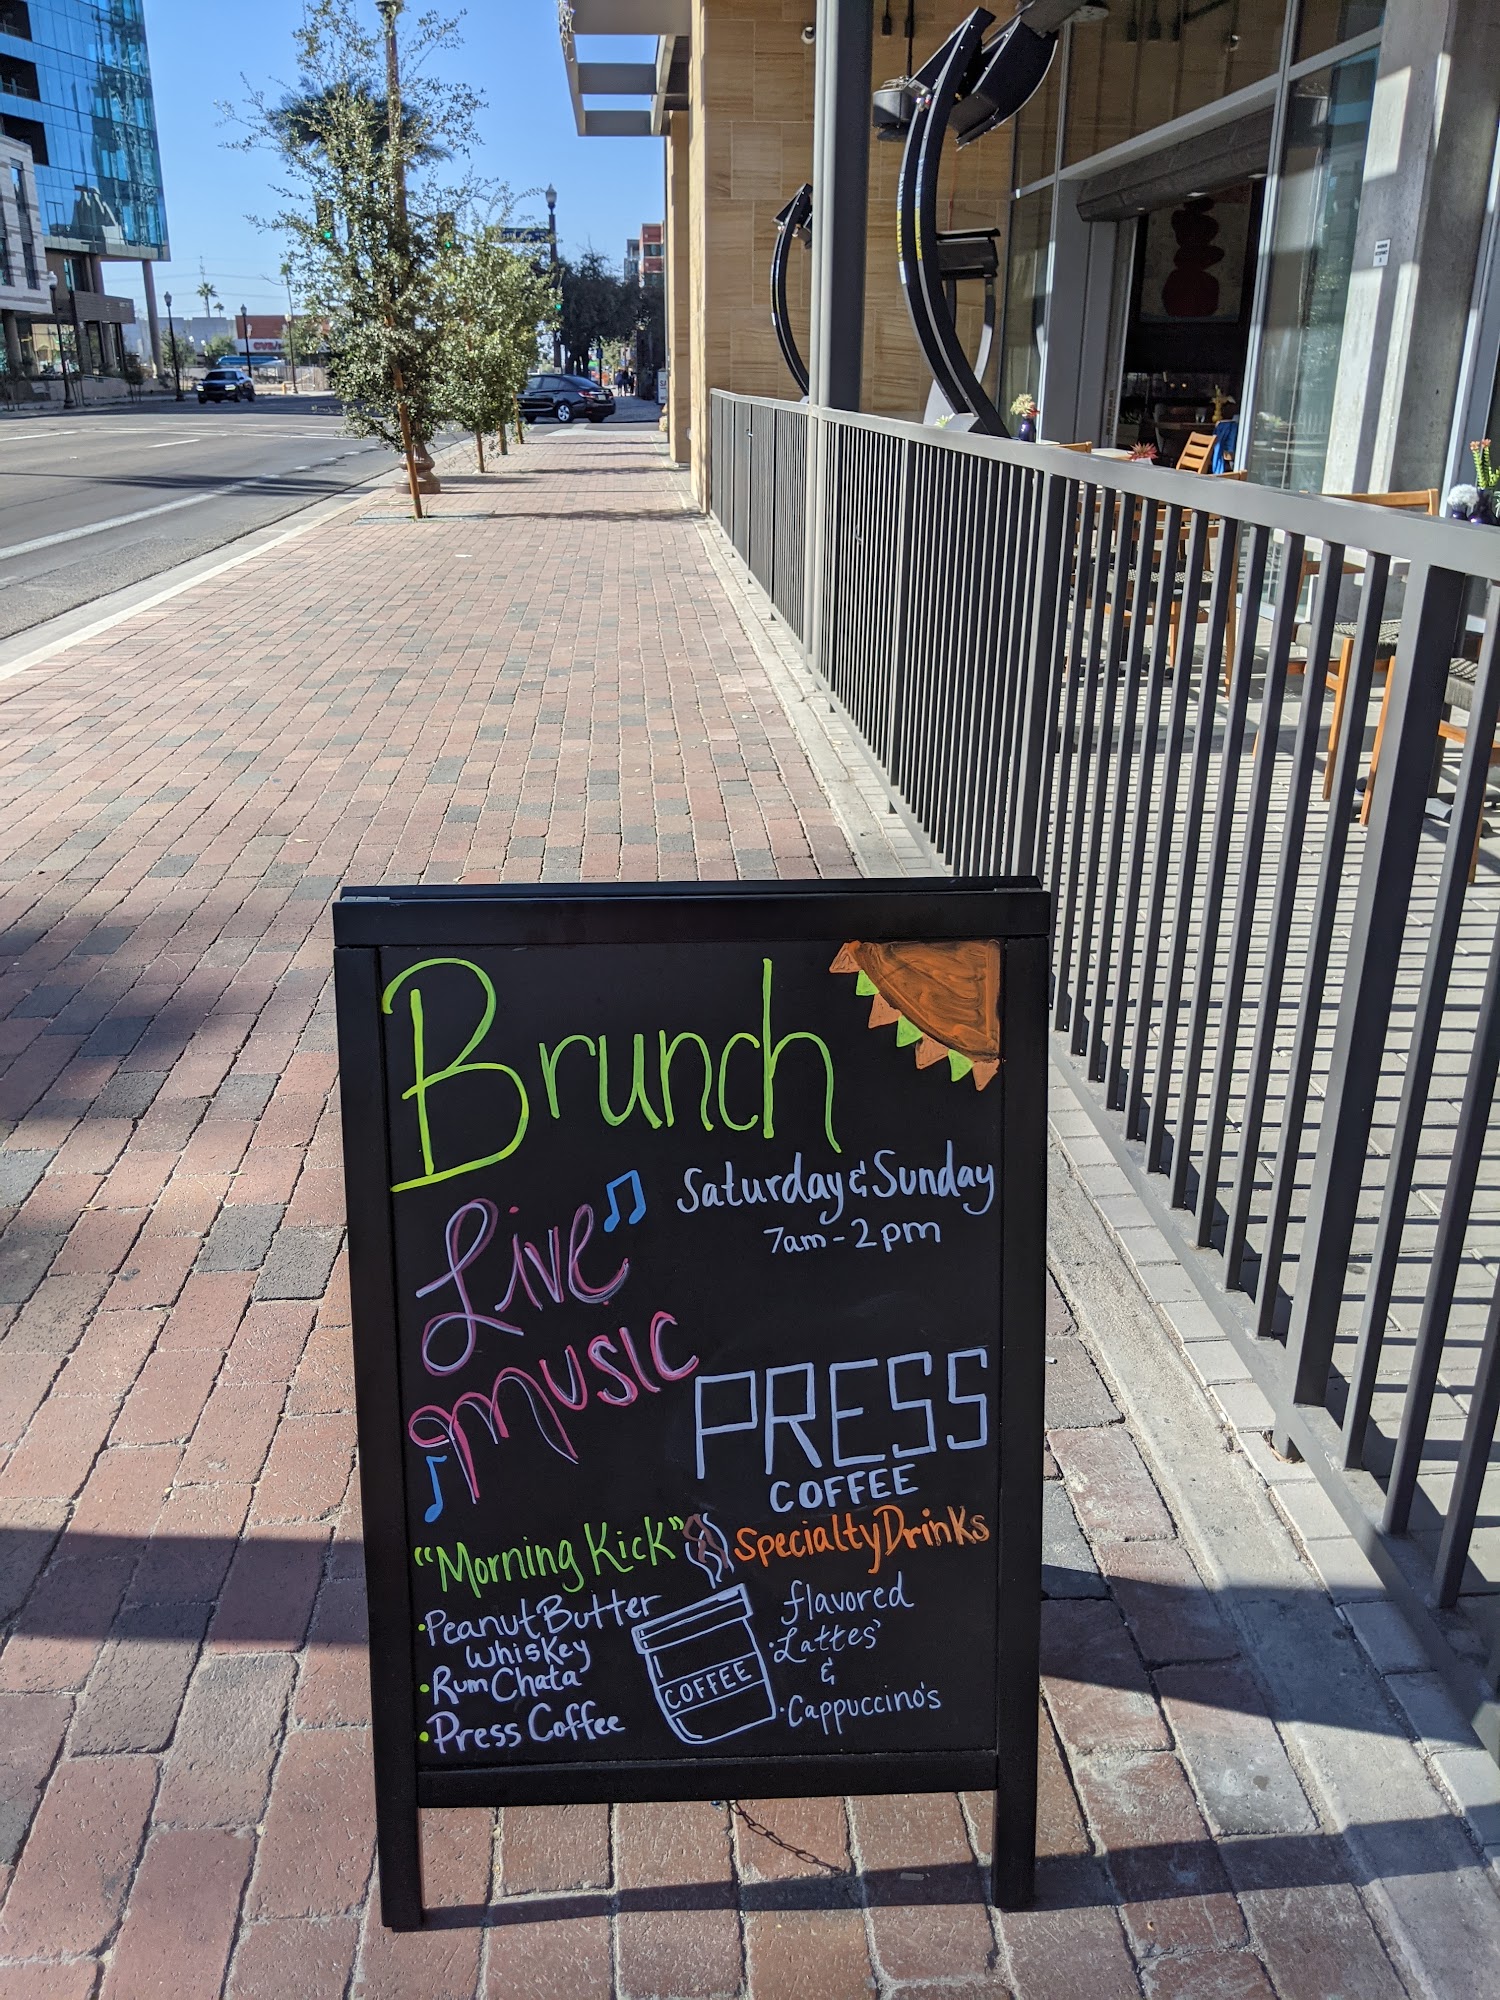 Brunch
Saturday & Sunday
7am - 2pm
Live
Music
PRESS
COFFEE
"Morning Kick"
• Peanut Butter
Whiskey
• Rum Chata
• Press Coffee
COFFEE
Specialty Drinks
flavored
• Lattes'
&
• Cappuccino's
CVS/